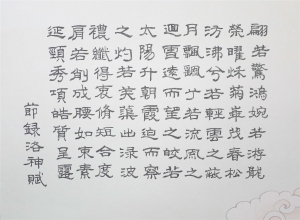 翩若驚鴻婉若游龍
榮曜秌菊華茂春松
彷彿兮若輕雲之蔽
月飄飖兮若流風之
迴雪遠而望之皎若
太陽升朝霞迫而察
之灼若芙蕖出淥波
穠纖得衷脩短合度
肩若削成腰如束素
延頸秀項皓質呈露
節録洛神賦